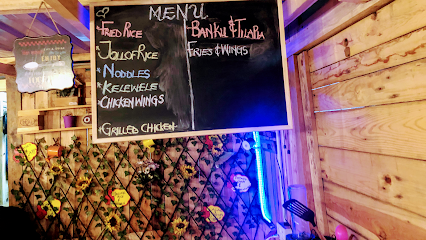 MENU
* FRIED RICE
* JOLLOF RICE
* NOODLES
* KELEWELE
* CHICKEN WINGS
* GRILLED CHICKEN
* BANKU & TILAPIA
FRIES & WINGS